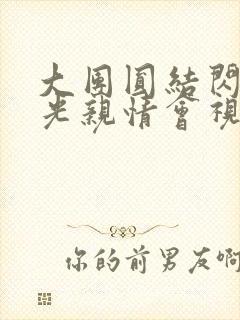 大團圓結閃
光親情會視
你的前男友啊